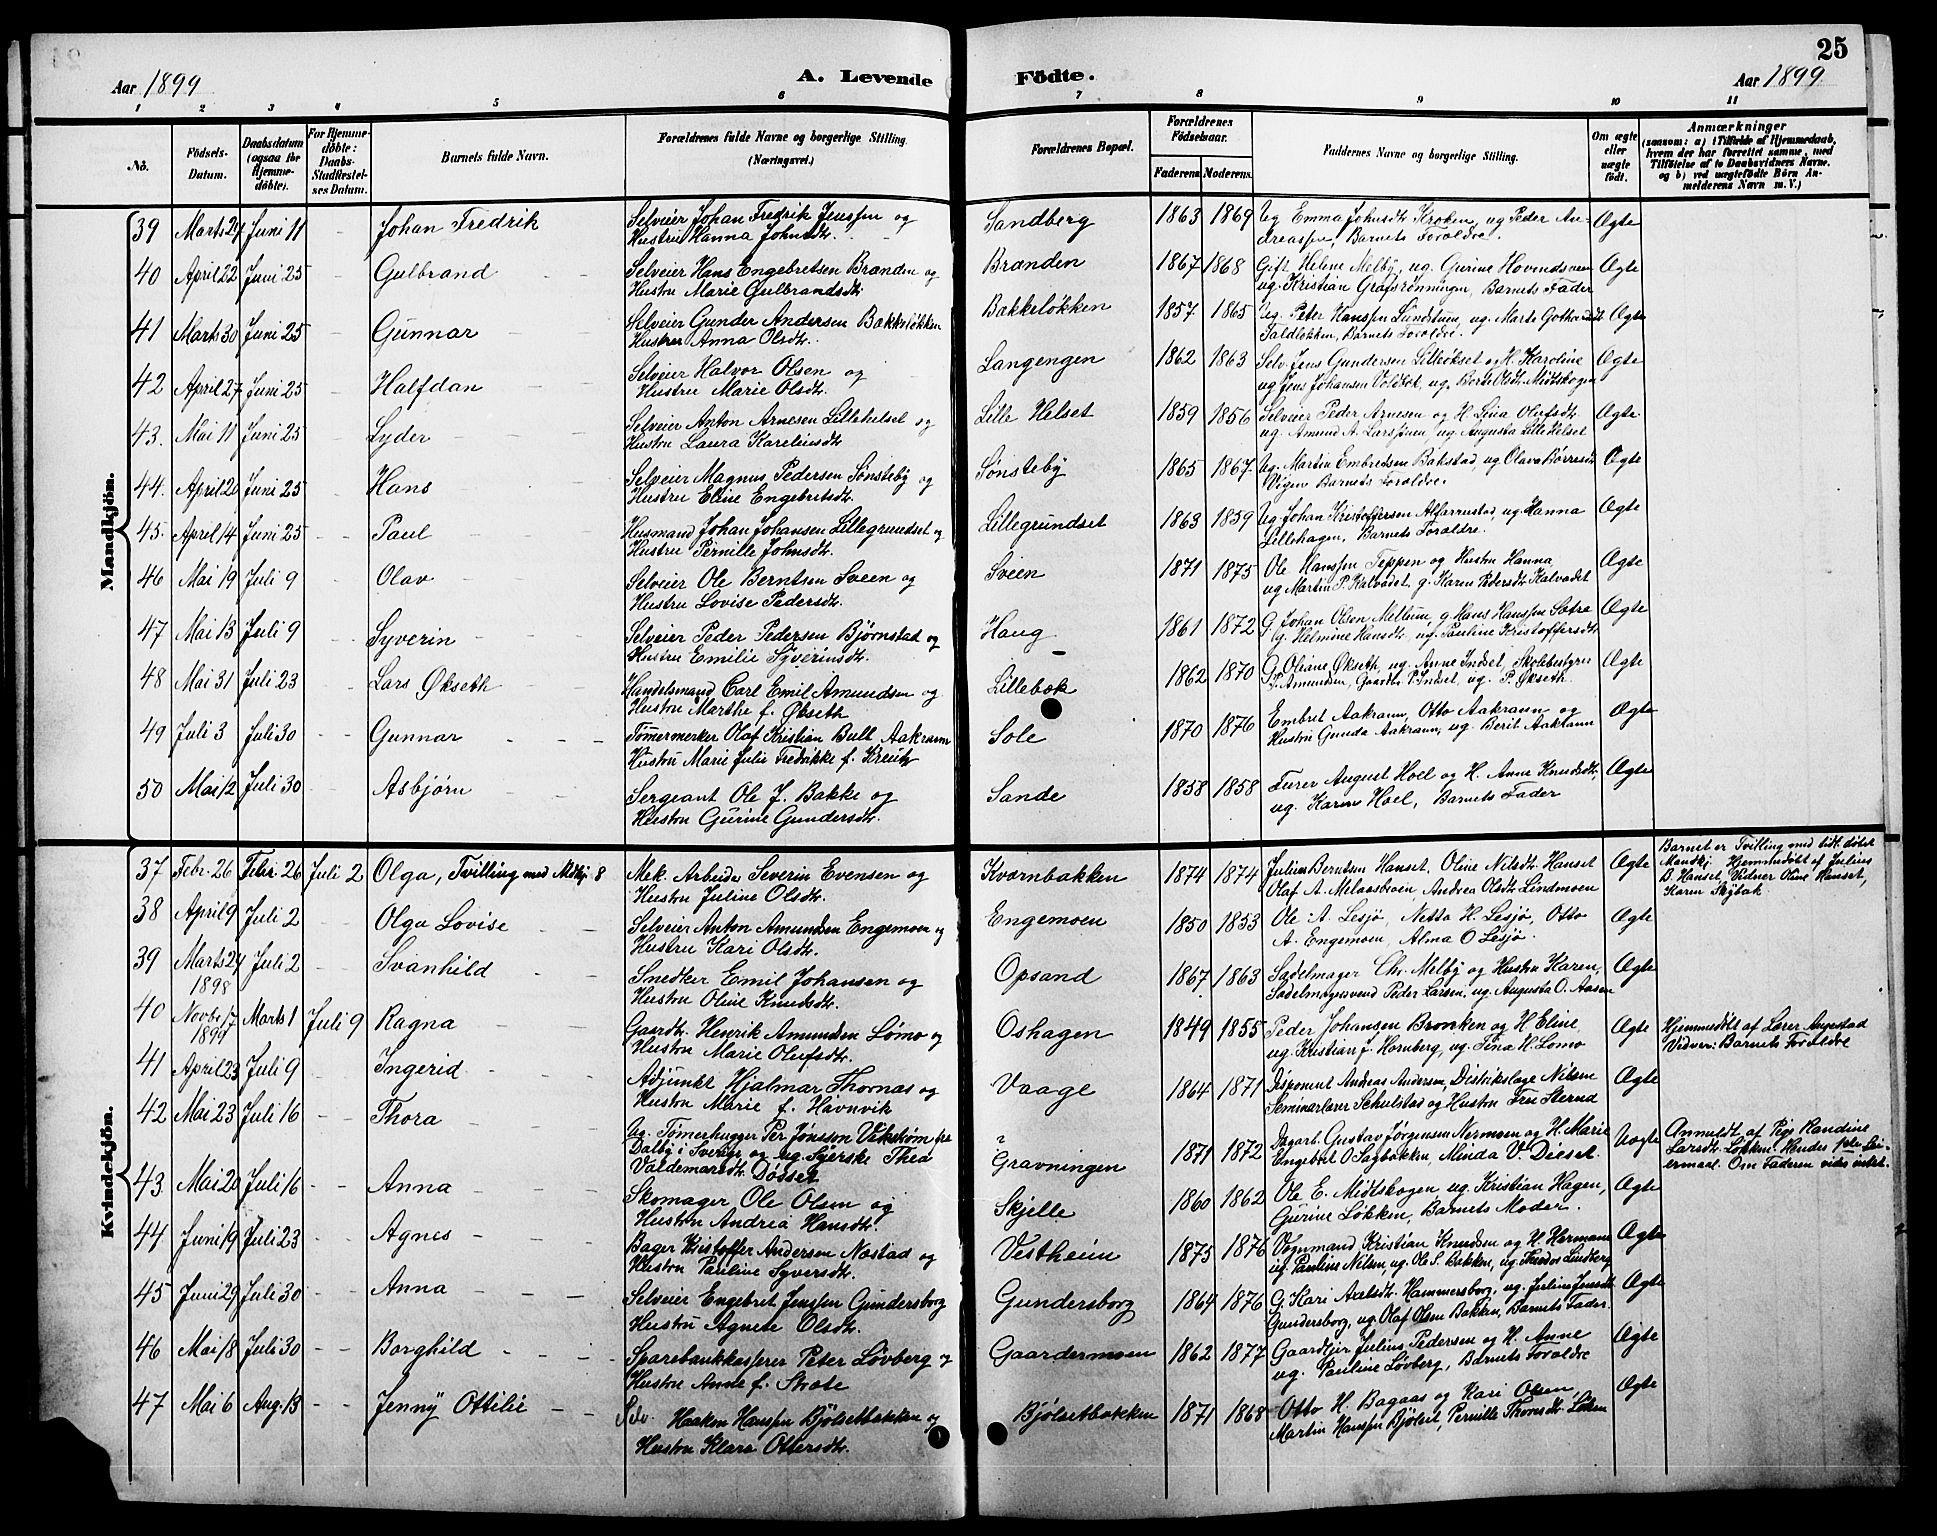 25
Aar 1899
A. Levende
Födte.
Aar 1899
1 2 3 4 5 6 7 8 9 10 11
No.
Fødsels-
Datum.
Daabsdatum
(ogsaa for
Hjemme-
døbte).
For Hjemme-
døbte:
Daabs-
Stadfæstel-
ses Datum.
Barnets fulde Navn.
Forældrenes fulde Navne og borgerlige Stilling.
(Næringsvei.)
Forældrenes Bopæl.
Forældrenes
Fødselsaar.
Faderens Moderens.
Faddernes Navne og borgerlige Stilling.
Om ægte
eller
uægte
født.
Anmærkninger
(saasom: a) i Tilfælde af Hjemmedaab,
hvem der har forrettet samme, med
Tilføielse af to Daabsvidners Navne,
og b) ved uægtefødte Börn An-
melderens Navn m. V.)
Mandkjön.
39 Marts 24 Juni 11 Johan Fredrik Selveier Johan Fredrik Jenssen og Sandberg 1863 1869 Ug Emma Johnsdt Kroken, ug Peder An- Ægte
Hustru Hanna Johnsdt. dreassen, Barnets Forældre.
40 April 22 Juni 25 Gulbrand Selveier Hans Engebretsen Branden og Branden 1867 1868 Gift Helene Melby, ug. Gurine Hovendsveen Ægte
Hustru Marie Gulbrandsdt ug. Kristian Grafsrønningen, Barnets Fader
41 Marts 30 Juni 25 Gunnar Selveier Gunder Andersen Bakkeløkken Bakkeløkken 1857 1865 Ug. Peter Hanssen Lundstum, ug. Marte Ægte
Hustru Anna Olsdt. Barnets Forældre.
42 April 27 Juni 25 Halfdan Selveier Halvor Olsen og Langengen 1862 1863 Selv. Jens Gundersen og H. Karoline Ægte
Hustru Marie Olsdt. ug Jens Johansen Voldbok, ug. Olsdt. Midtskogen
43. Mai 11 Juni 25 Lyder Selveier Anton Arnesen Lillehelset og Lille Helset 1859 1856 Selveier Peder Arnesen og H. Lina Olufsdt. Ægte
Hustru Laura Karelinsdt. ug. Amund A. ug Augusta Lille Helset
44. April 20 Juni 25 Hans Selveier Magnus Pedersen Sønsteby og Sønsteby 1865 1867 Ug. Martin Embretsen Bakstad, ug Olava Ægte
Hustru Eline Engebretsdt. Barnets Forældre.
45. April 14 Juni 25 Paul Husmand Johan Johansen Lillegrundset og Lillegrundset 1863 1859 Ug Johan Kristoffersen ug Hanna Ægte
Hustru Pernille Johnsdt. Lillehagen, Barnets Forældre.
46 Mai 19 Juli 9 Olav Selveier Ole Berntsen Sveen og Sveen 1871 1875 Ole Hanssen Teppen og Hustru Hanna, Ægte
Hustru Lovise Pedersdt. ug Martin P. Kalvadet, g. Karen Pedersdt Kalvadet
47 Mai 13 Juli 9 Syverin Selveier Peder Pedersen Bjørnstad og Haug 1861 1872 G Johan Olsen Mellum, g Hans Hanssen Sætra Ægte
Hustru Emilie Syverinsdt. Ug. Helmine Hansdt, ug. Pauline Kristoffersdt
48 Mai 31 Juli 23 Lars Økseth Handelsmand Carl Emil Amundsen og Lillebæk 1862 1870 G. Oliane Økseth, ug. Anne Indset, Skolebestyrer Ægte
Hustru Marthe f. Økseth P. Amundsen, Gaardbr. P. Indset, ug. P. Økseth.
49 Juli 3 Juli 30 Gunnar Tømermerker Olaf Kristian Bull Aakrann Sole 1870 1876 Embret Aakrann, Otto Aakrann og Ægte
Hustru Marie Julie Fredrikke f. Kreutz Hustru Gunda Aakrann, ug. Berit Aakrann
50 Mai 12 Juli 30 Asbjørn Sergeant Ole J. Bakke og Sande 1858 1858 Furer August Hoel og H. Anne Knudsdt. Ægte
Hustru Gurine Gundersdt. ug. Karen Hoel, Barnets Fader
Kvindekjön.
37 Febr. 26 Febr. 26 Juli 2 Olga, Tvilling med Mdkj. 8 Mek. Arbeider Severin Evensen og Kværnbakken 1874 1874 Julius Berntsen Hanset, Oline Nilsdt. Hanset Ægte Barnet er Tvilling med tidl. døbt
Hustru Juline Olsdt. Olaf A. Melaasbroen, Andrea Olsdt. Lindmoen Mandkj. Hjemmedøbt af Julius
B. Hanset, Vidner Oline Hanset,
Karen Skybak.
38 April 9 Juli 2 Olga Lovise Selveier Anton Amundsen Engemoen og Engemoen 1850 1853 Ole A. Lesjø, Netta H. Lesjø, Otto Ægte
Hustru Kari Olsdt. A. Engemoen, Alma O Lesjø.
39 Marts 24 Juli 2 Svanhild Snedker Emil Johansen og Opsand 1867 1863 Sadelmager Chr. Melby og Hustru Karen, Ægte
Hustru Oline Knudsdt. Sadelmagersvend Peder Larsen, ug. Augusta O. Aasen
1898
40 Novbr 17 Marts 1 Juli 9 Ragna Gaardbr. Henrik Amundsen Lømo og Oshagen 1849 1855 Peder Johansen Bronken og H Eline, Ægte Hjemmedøbt af Lærer Augestad
Hustru Marie Olufsdt. ug. Kristian J. Hornberg, ug. Tina H. Lømo Vidner: Barnets Forældre
1899
41 April 23 Juli 9 Ingerid Adjunkt Hjalmar Thornæs og Vaage 1864 1871 Disponent Andreas Andersen, Distriktslæge Nilsen Ægte
Hustru Marie f. Havnvik Seminarlærer Schulstad og Hustru Fru Sternd
42 Mai 23 Juli 16 Thora Ug. Tømerhugger Per Jönsson Vikstrøm fra Gravningen 1871 1872 Dagarb. Gustav Jørgensen Nermoen og H. Marie Uægte Anmeldt af Pige Randine
Dalby i Sverige og ug. Syerske Thea Engebret O Sagbakken, Minda V. Dieset. Larsdt. Løkken. Hendes 1ste Lei-
Valdemarsdt. Døsset ermaal. Om Faderen vides intet.
43 Mai 20 Juli 16 Anna Skomager Ole Olsen og Skjelle 1860 1862 Ole E. Midtskogen, ug. Kristian Hagen, Ægte
Hustru Andrea Hansdt. Gurine Løkken, Barnets Moder.
44 Juni 19 Juli 23 Agnes Bager Kristoffer Andersen Næstad og Vestheim 1875 1876 Vognmand Kristian Knudsen og H. Hermane Ægte
Hustru Pauline Syversdt. ug. Pauline Nilsen, ug. Ole S. Bakken, ug. Lindberg
45 Juni 29 Juli 30 Anna Selveier Engebret Jenssen Gundersborg Gundersborg 1864 1876 G. Kari Axelsdt. Hammersborg, ug. Juline Jensdt. Ægte
Hustru Agnete Olsdt. Gundersborg, ug. Olaf Olsen Bakken, Barnets Fader.
46 Mai 18 Juli 30 Borghild Sparebankkasserer Peter Løvberg og Gaardermoen 1862 1877 Gaardejer Julius Pedersen og H. Anne Ægte
Hustru Anne f. Stræte ug. Pauline Løvberg, Barnets Forældre
47 Mai 6 Aug. 13 Jenny Ottilie Selv. Haaken Hanssen Bjølsetbakken og Bjølsetbakken 1871 1868 Otto H. Bagaas og Kari Olsen, Ægte
Hustru Klara Ottersdt. Martin Hanssen Bjølset, Pernille Thoresdt. Løken